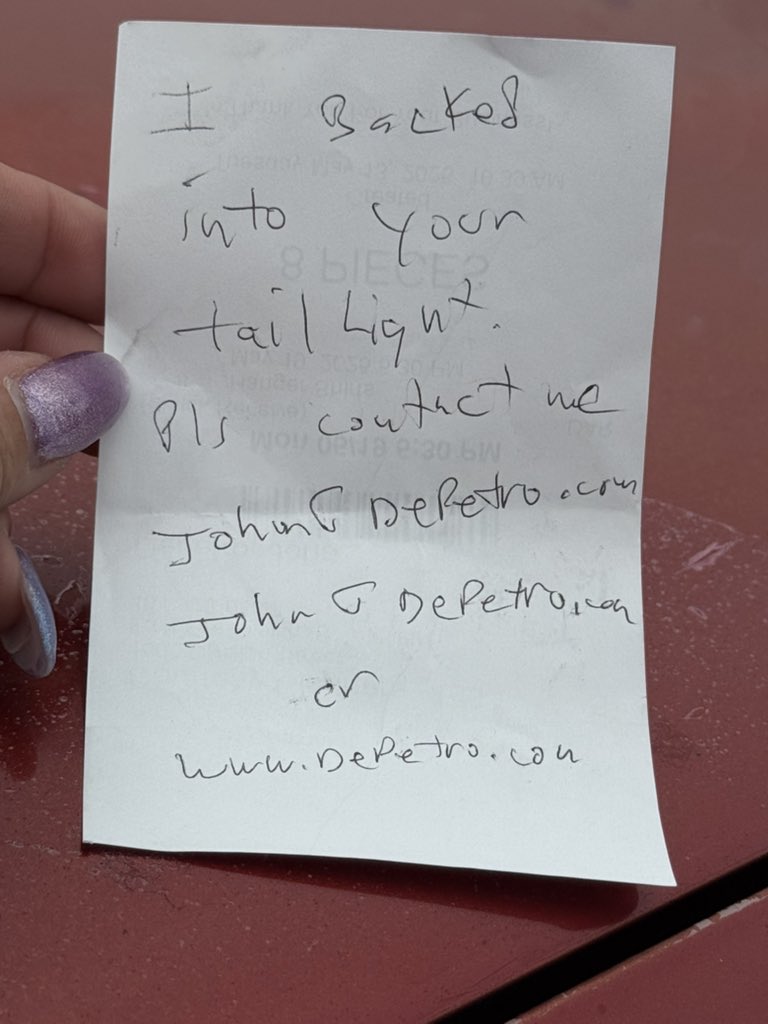 I Backed
into your
tail Light.
Pls contact me
John@DePetro.com
John@DePetro.com
or
www.DePetro.com